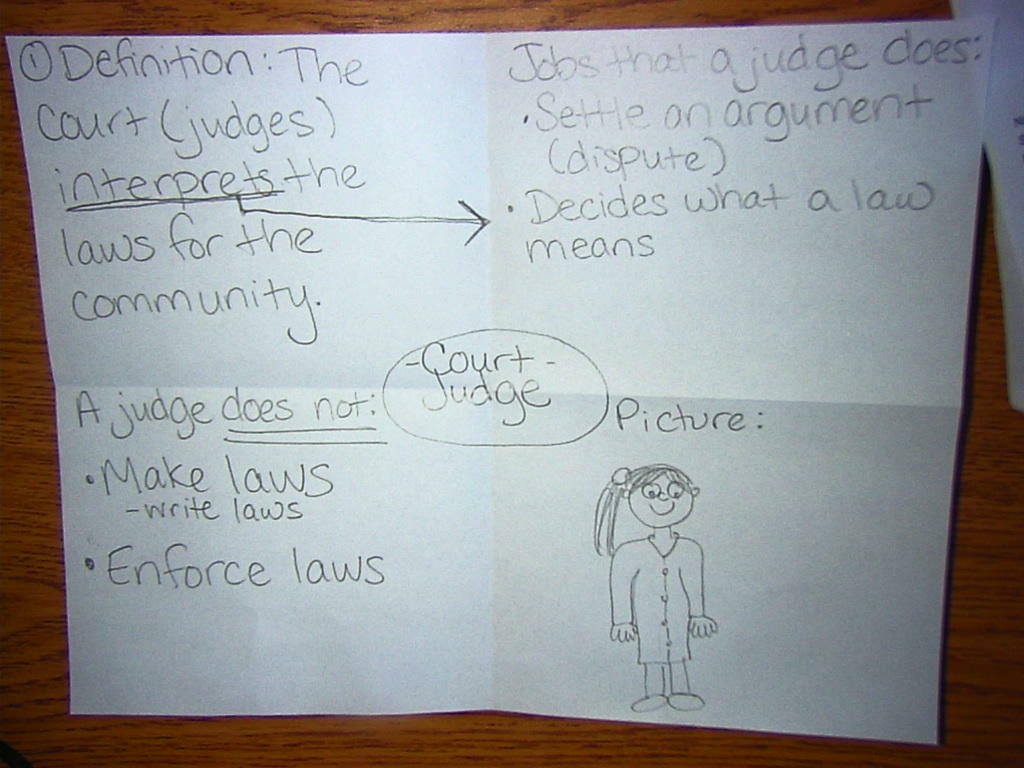 ① Definition: The
Court (judges)
interprets the
laws for the
community.
Jobs that a judge does:
• Settle an argument
(dispute)
• Decides what a law
means
- Court -
Judge
A judge does not:
• Make laws
- write laws
• Enforce laws
Picture: